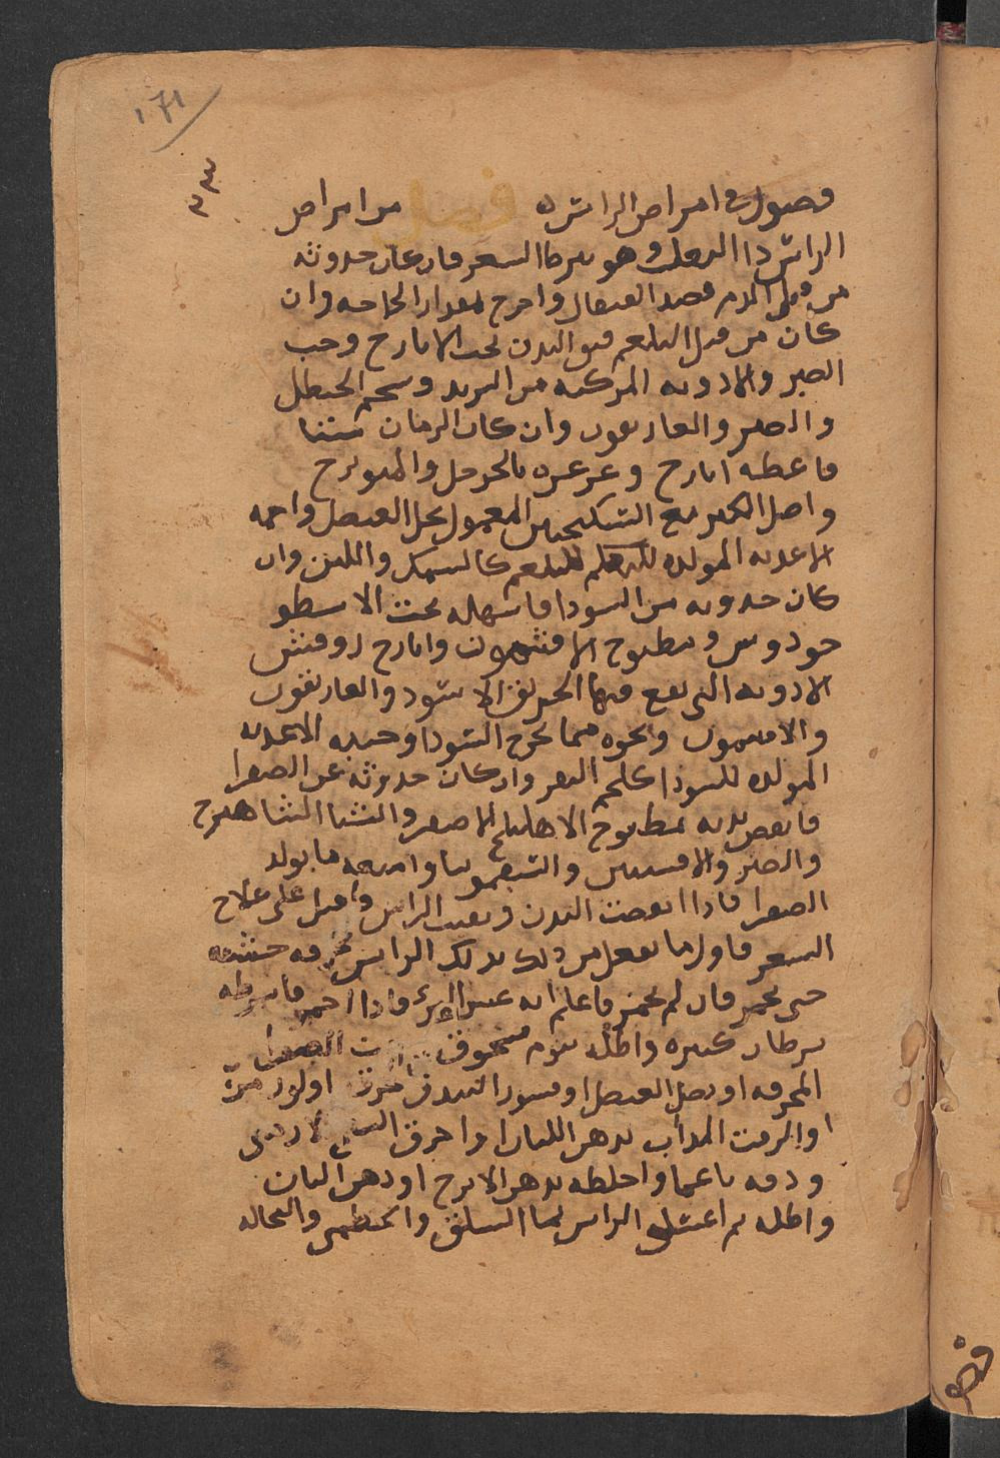 ١٧١
٣٣
فصول في امراض الراس فصل من امراض
الراس داا الثعلب وهو تمرط الشعر فان كان حدوثه
من قبل الدم فصد القيفال واخرج بمقدار الحاجه وان
كان من قبل البلغم فنق البدن بحب الايارج وحب
الصبر والادويه المركبه من التربد وشحم الحنظل
والصبر والغاريقون وان كان الزمان شتا
فاعطه ايارج وغرغره بالخردل والميويزج
واصل الكبر مع السكنجبين المعمول بخل العنصل واحمه
الاغديه المولده للبلغم كالسمك واللبن وان
كان حدوثه من السودا فاسهله بحب الاسطو
خودوس ومطبوخ الافتيمون وايارج روفس
الادويه التي يقع فيها الخربق الاسود والغاريقون
والافتيمون ونحوه مما يخرج السودا وجنبه الاغديه
المولده للسودا كلحم البقر وان كان حدوثه عن الصفرا
فانفض بدنه بمطبوخ الاهليلج الاصفر والسنا الشاهترج
والصبر والافسنتين والسقمونيا وامنعه ما يولد
الصفرا فاذا انقصت البدن ونقيت الراس واقبل على علاج
الشعر فاول ما تفعل من ذلك تدلك الراس بخرقه خشنه
حتى يحمر فان لم يحمر فاعلم انه عسر البرء فاذا احمر فاشرطه
شرطا كثيره واطله بثوم مسحوق
المحرقه او بصل العنصل او قشور البندق اولوز مر
او الزفت المداب بدهن اللبان او احرق
ودقه ناعما واخلطه بدهن الاترج او دهن البان
واطله ثم اغسل الراس بما السلق والخطمي والنخاله